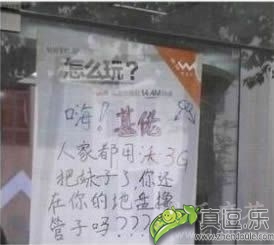 怎么玩?
14.4M
嗨! 基佬
人家都用沃3G
把妹子了,你还
在你的地盘撸
管子吗???
真逗乐
www.zhendoule.com